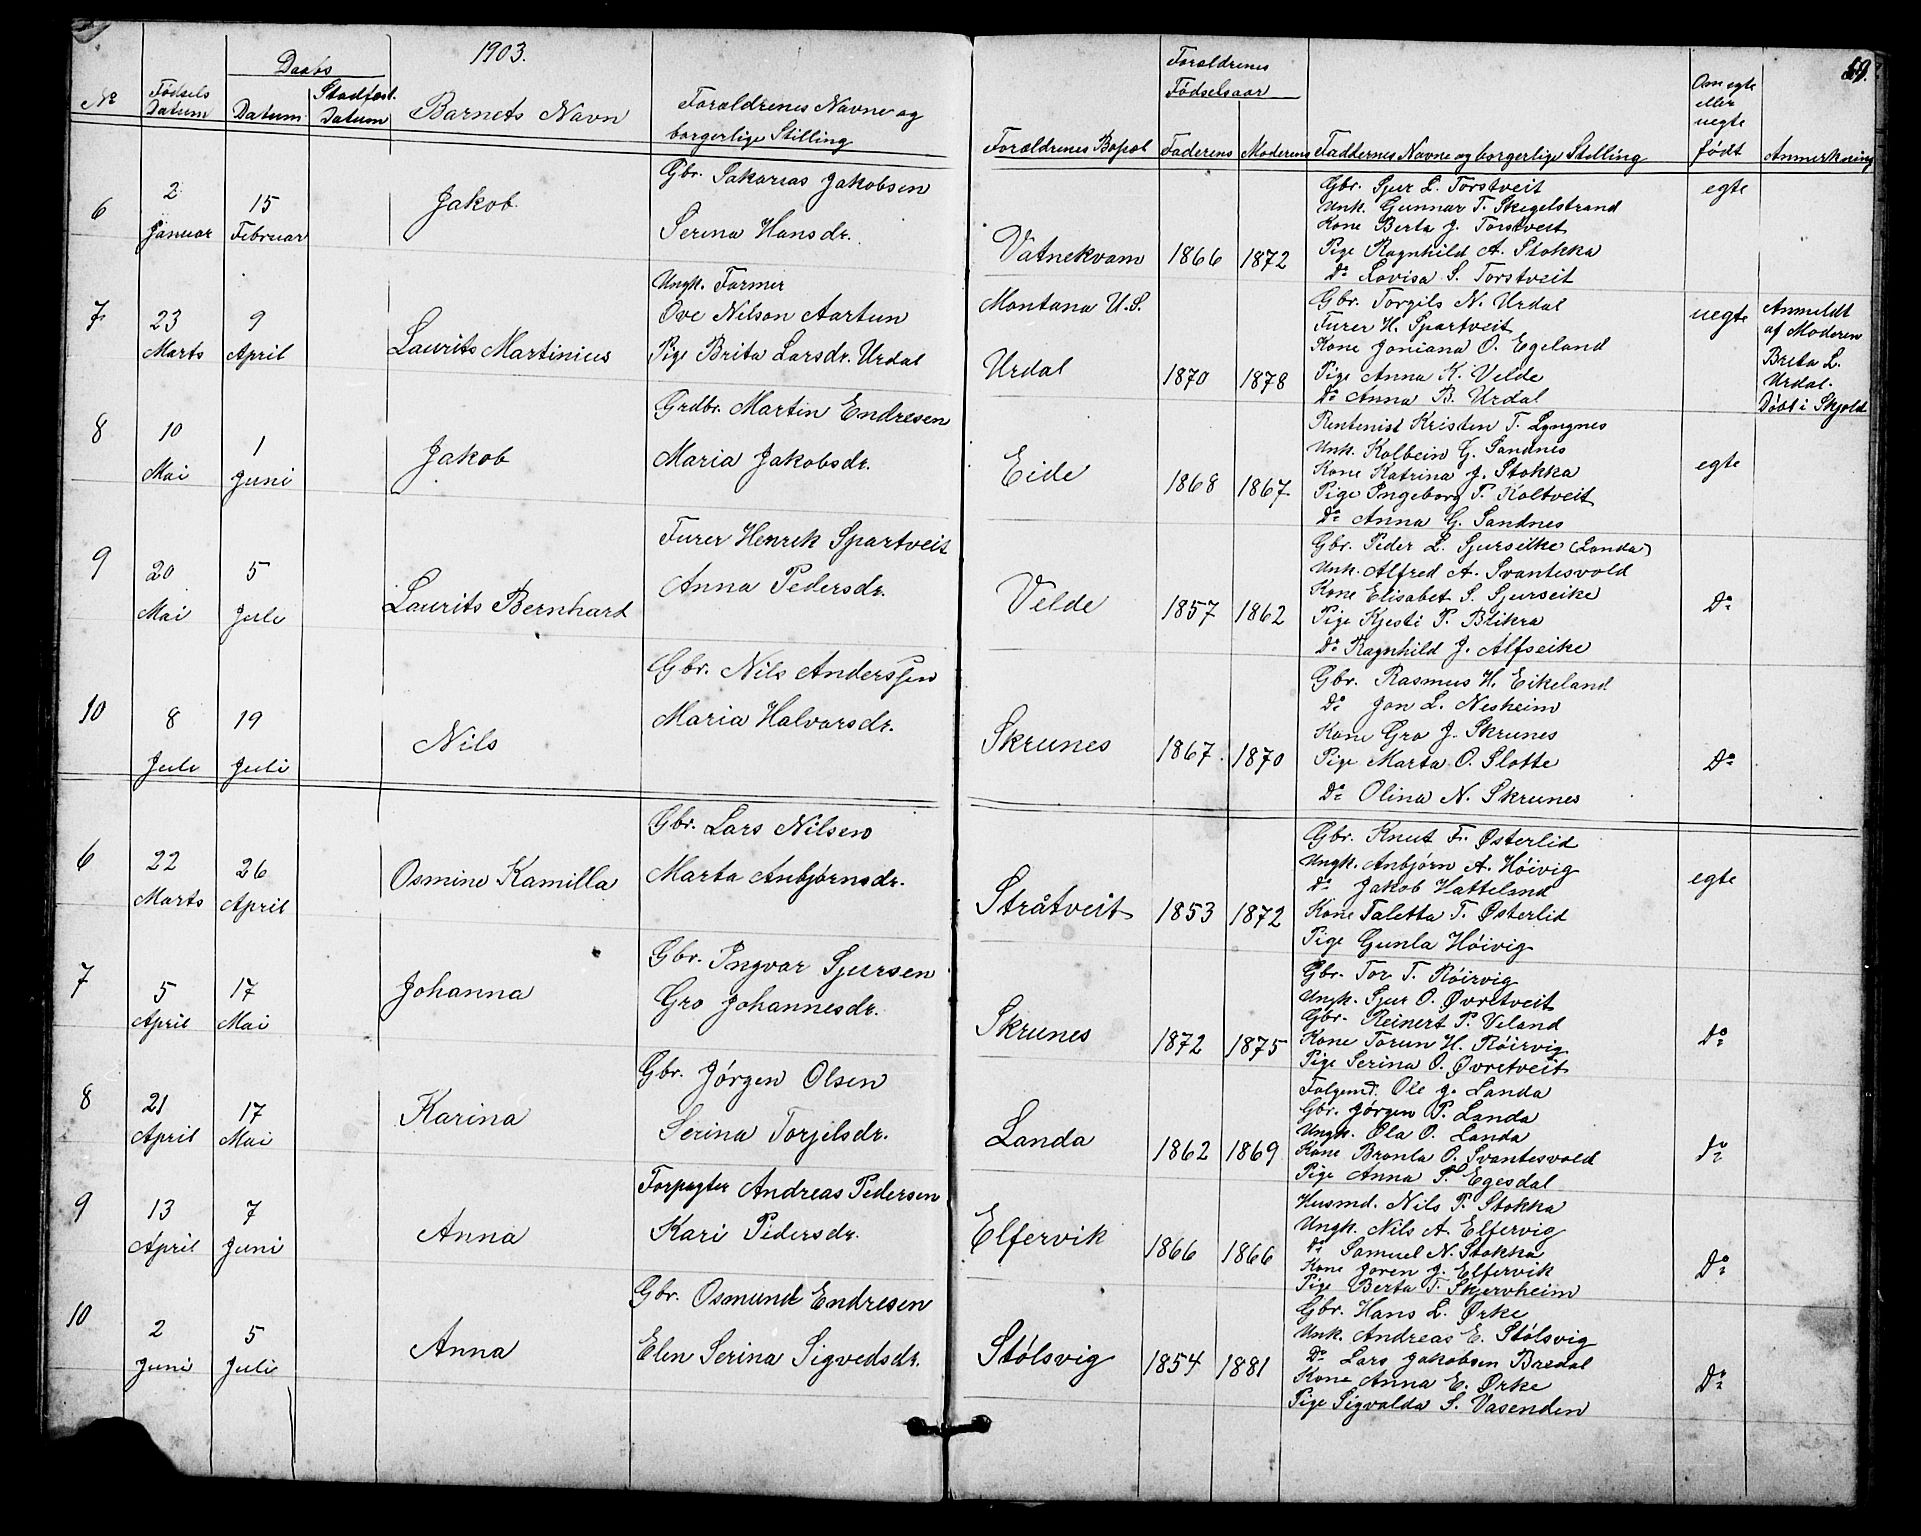 1903.
59.
No
Fødsels Datum
Daabs
Datum
Stadfæst. Datum
Barnets Navn
Forældrenes Navne og borgerlige Stilling
Forældrenes Bopæl
Forældrenes Fødselsaar
Faderens
Moderens
Faddernes Navne og borgerlige Stilling
Om egte eller uegte født
Anmerkning
6
2 Januar
15 Februar
Jakob
Gbr. Sakarias Jakobsen
Serina Hansdr.
Vatnekvam
1866
1872
Gbr. Sjur L. Torstveit
Unk. Gunnar T. Skegelstrand
Kone Berta J. Torstveit
Pige Ragnhild A. Stokka
Do Lovisa S. Torstveit
egte
7
23 Marts
9 April
Laurits Martinius
Ungk. Farmer
Ove Nilson Aartun
Pige Brita Larsdr. Urdal
Montana U.S.
Urdal
1870
1878
Gbr. Torgils N. Urdal
Furer H. Spartveit
Kone Joniana O. Egeland
Pige Anna K. Velde
Do Anna B. Urdal
uegte
Anmeldt
af Moderen
Brita L.
Urdal.
Døbt i Skjold
8
10 Mai
1 Juni
Jakob
Grdbr. Martin Endresen
Maria Jakobsdr.
Eide
1868
1867
Rentenist Kristen T. Lyngnes
Unk. Kolbein G. Sandnes
Kone Katrina J. Stokka
Pige Ingeborg T. Koltveit
Do Anna G. Sandnes
egte
9
20 Mai
5 Juli
Laurits Bernhard
Furer Henrik Spartveit
Anna Pedersdr.
Velde
1857
1862
Gbr. Peder L. Sjurseike (Landa)
Unk. Alfred A. Svantesvold
Kone Elisabet S. Sjurseike
Pige Kjesti P. Blikra
Do Ragnhild J. Alfseike
Do
10
8 Juli
19 Juli
Nils
Gbr. Nils Anderssen
Maria Halvorsdr.
Skrunes
1867.
1870
Gbr. Rasmus H. Eikeland
Do Jon L. Nesheim
Kone Gro J. Skrunes
Pige Marta O. Slotte
Do Olina N. Skrunes
Do
6
22 Marts
26 April
Osmine Kamilla
Gbr. Lars Nilsen
Marta Anbjørnsdr.
Stråtveit
1853
1872
Gbr. Knut F. Østerlid
Ungk. Anbjørn A. Höivig
Do Jakob Hatteland
Kone Taletta T. Østerlid
Pige Gunla Höivig
egte
7
5 April
17 Mai
Johanna
Gbr. Ingvar Sjursen
Gro Johannesdr.
Skrunes
1872
1875
Gbr. Tor T. Röirvig
Ungk. Sjur O. Øvretveit
Gbr. Reinert P. Veland
Kone Torun H. Röirvig
Pige Serina O. Øvretveit
Do
8
21 April
17 Mai
Karina
Gbr. Jörgen Olsen
Serina Torjelsdr.
Landa
1862
1869
Folgemd. Ole J. Landa
Gbr. Jörgen P. Landa
Ungk. Ola O. Landa
Kone Bronla O. Svantesvold
Pige Anna P. Egesdal
Do
9
13 April
7 Juni
Anna
Forpagter Andreas Pedersen
Kari Pedersdr.
Elfervik
1866
1866
Husmd. Nils P. Stokka
Ungk. Nils A. Elfervig
Do Samuel N. Stokka
Kone Joren J. Elfervik
Pige Berta T. Skjervheim
Do
10
2 Juni
5 Juli
Anna
Gbr. Osmund Endresen
Elen Serina Sigvedsdr.
Stólsvig
1854
1881
Gbr. Hans L. Ørke
Unk. Andreas E. Stólsvig
Do Lars Jakobsen Bredal
Kone Anna E. Ørke
Pige Sigvalda S. Vasenden
Do